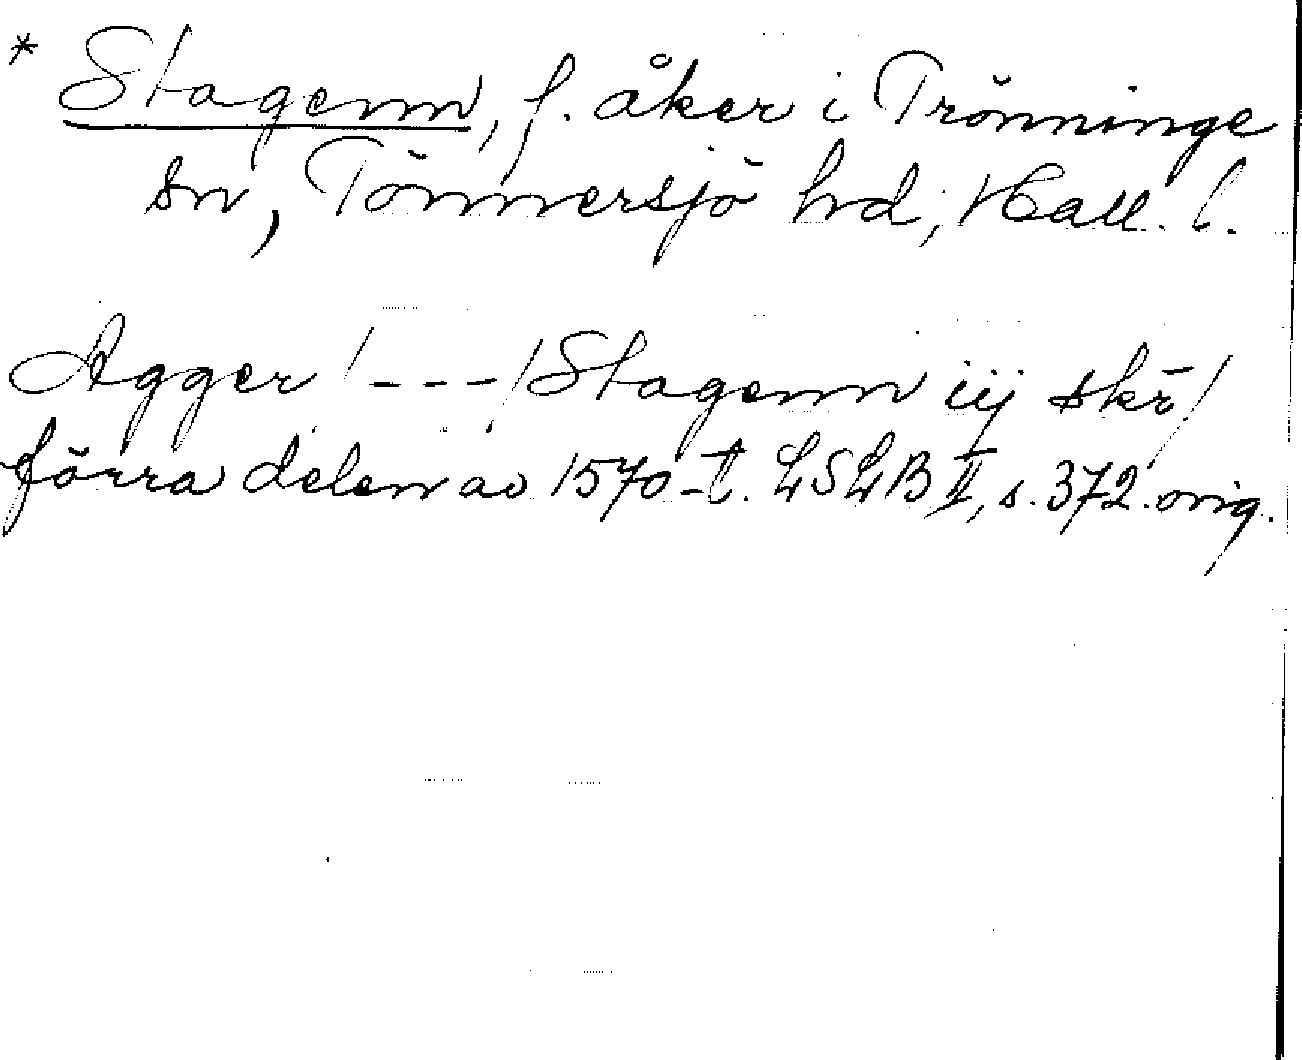 * Stagenn, f. åker i Trönninge
sn, Tönnersjö hd, Hall. l.
Agger /---/ Stagenn iij skr̄ /
förra delen av 1570-t. LSLB II, s. 372. orig.